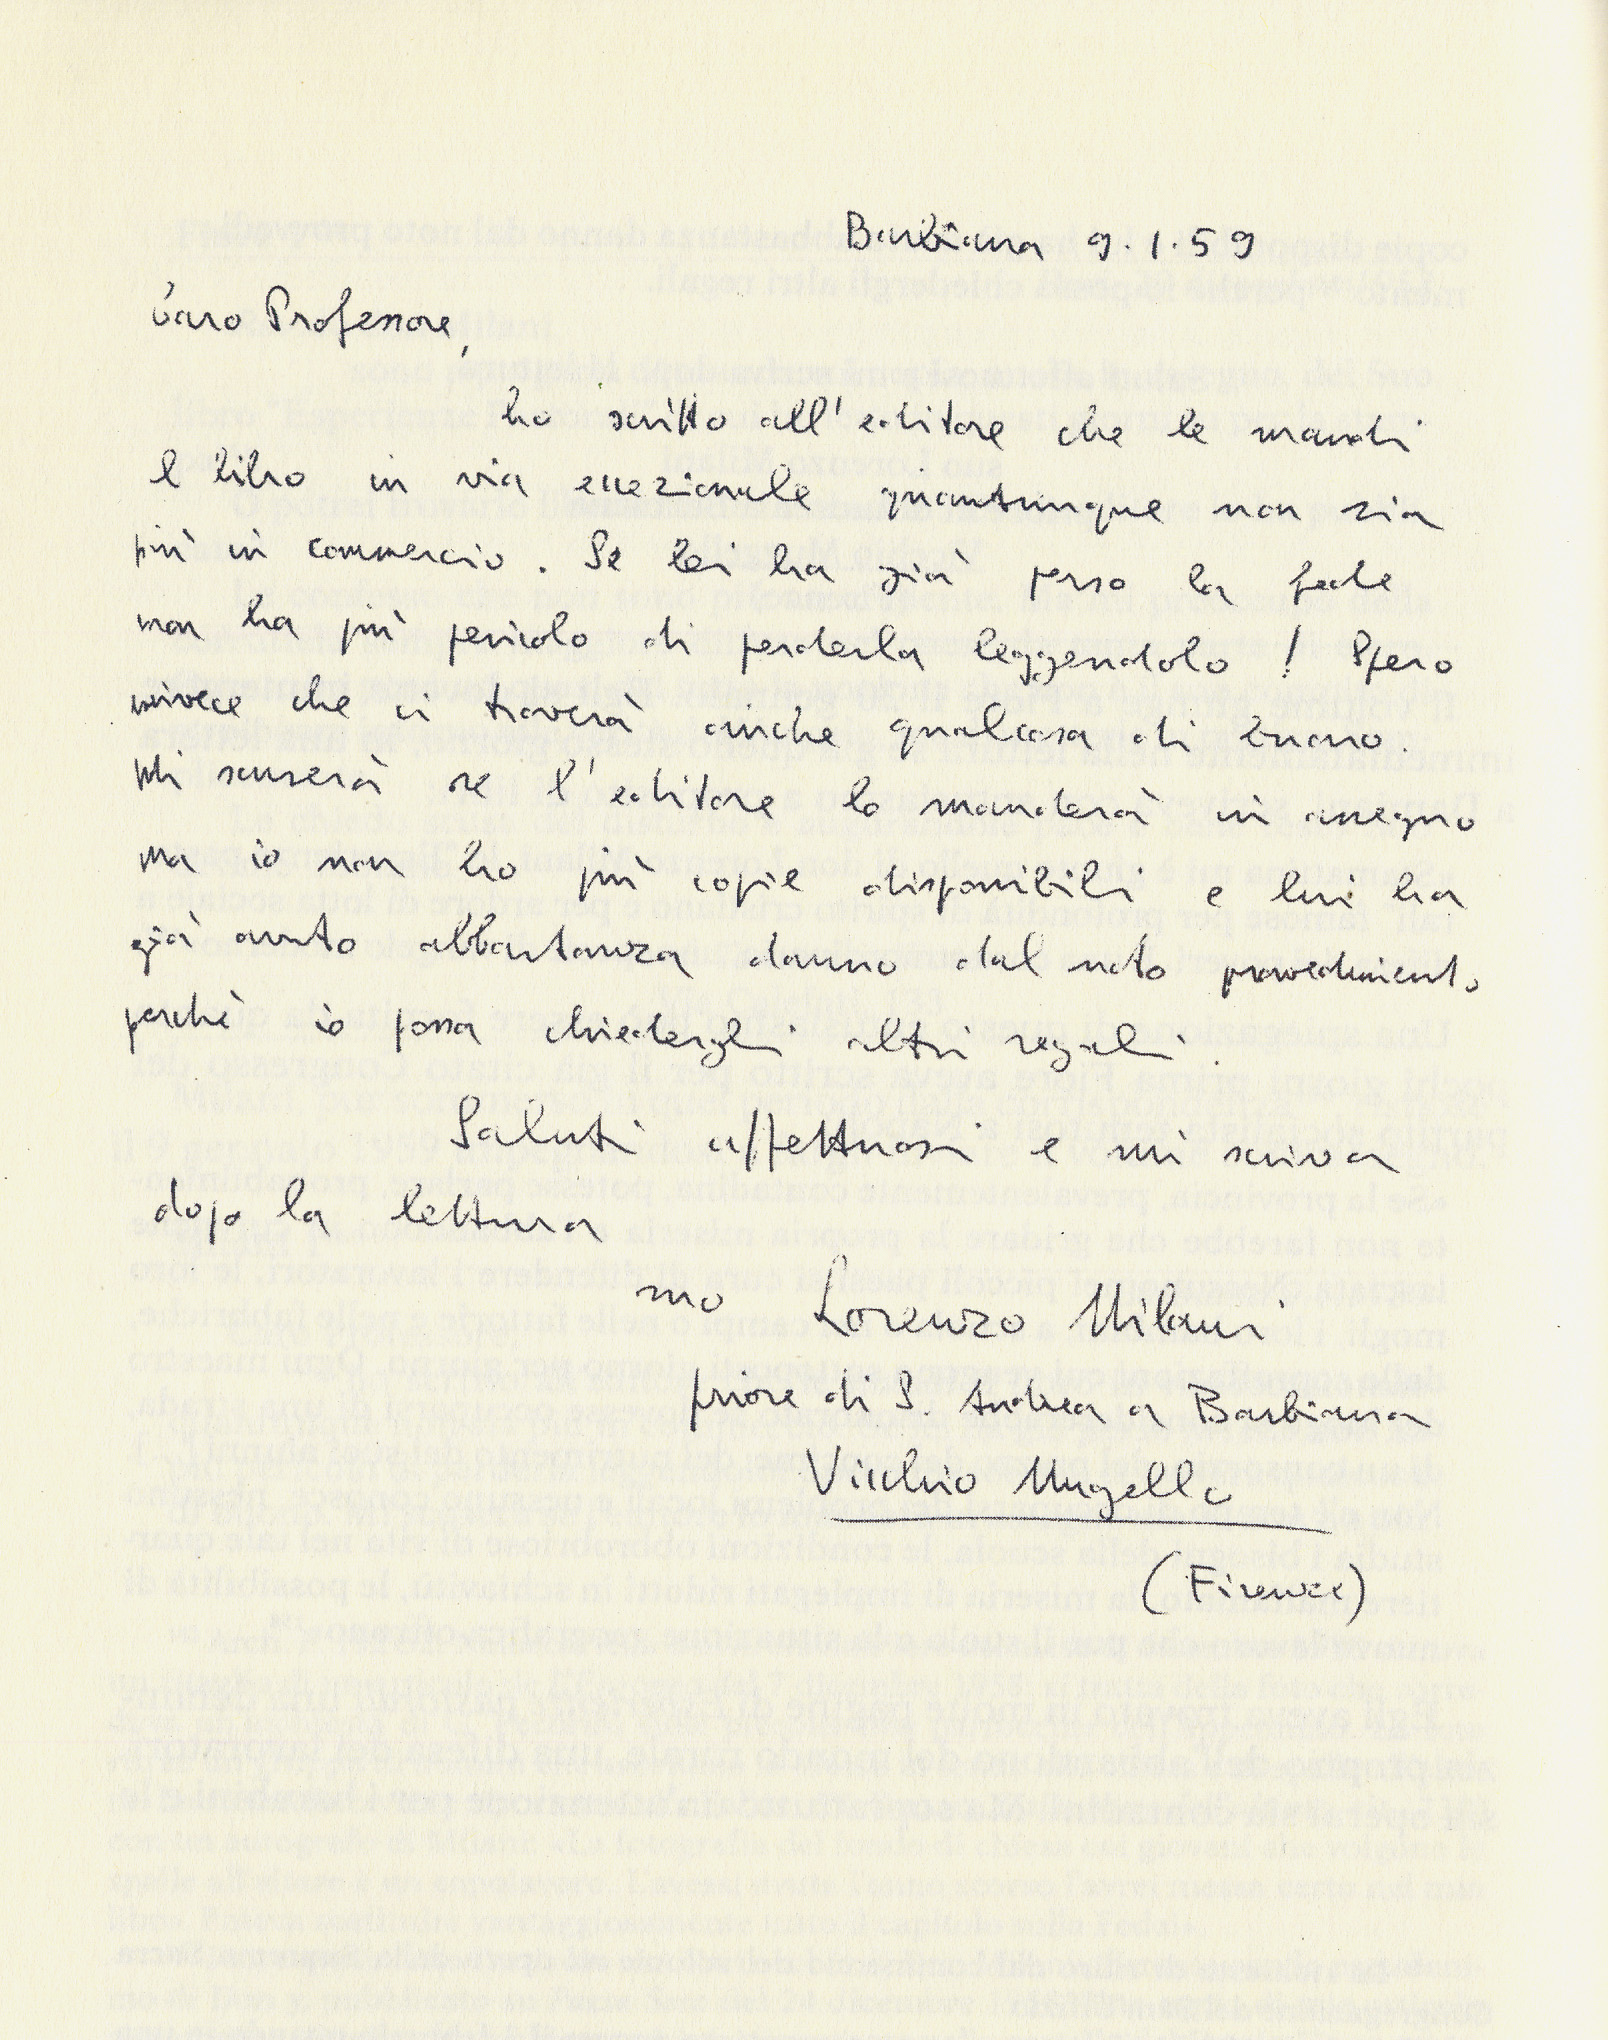 Barbiana 9.1.59
Caro Professore,
ho scritto all'editore che le mandi
l libro in via eccezionale quantunque non sia
più in commercio. Se lei ha già perso la fede
non ha più pericolo di perderla leggendolo! Spero
invece che ci troverà anche qualcosa di buono.
Mi scuserà se l'editore lo manderà in assegno
ma io non ho più copie disponibili e lui ha
già avuto abbastanza danno dal noto provvedimento
perchè io possa chiedergli altri regali.
Saluti affettuosi e mi scriva
dopo la lettura
suo Lorenzo Milani
priore di S. Andrea a Barbiana
Vicchio Mugello
(Firenze)